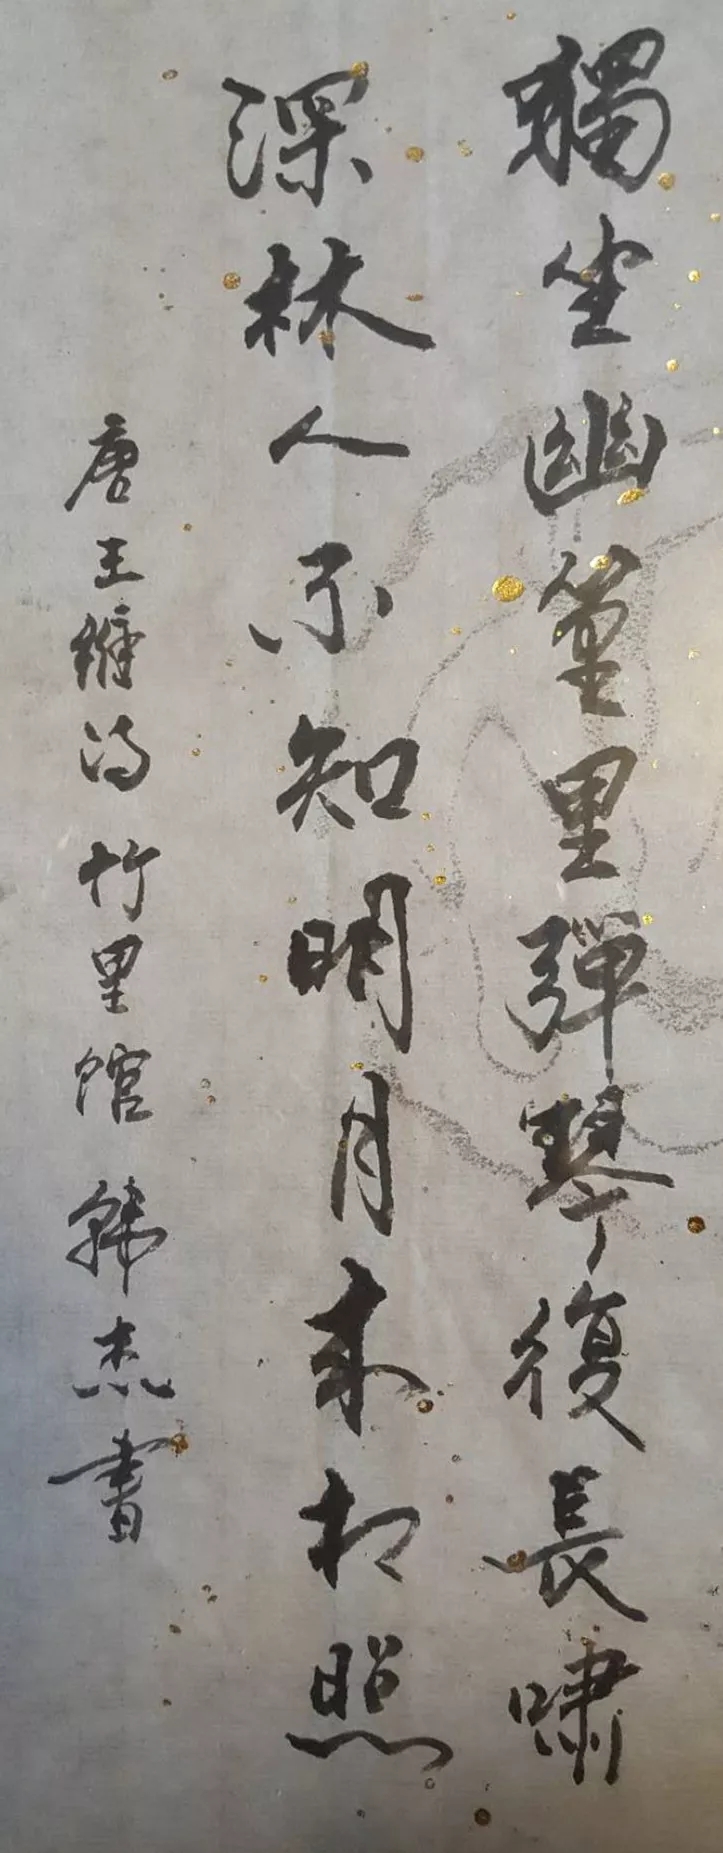 獨坐幽篁里彈琴復長嘯
深林人不知明月来相照
唐王維詩竹里館韩杰書